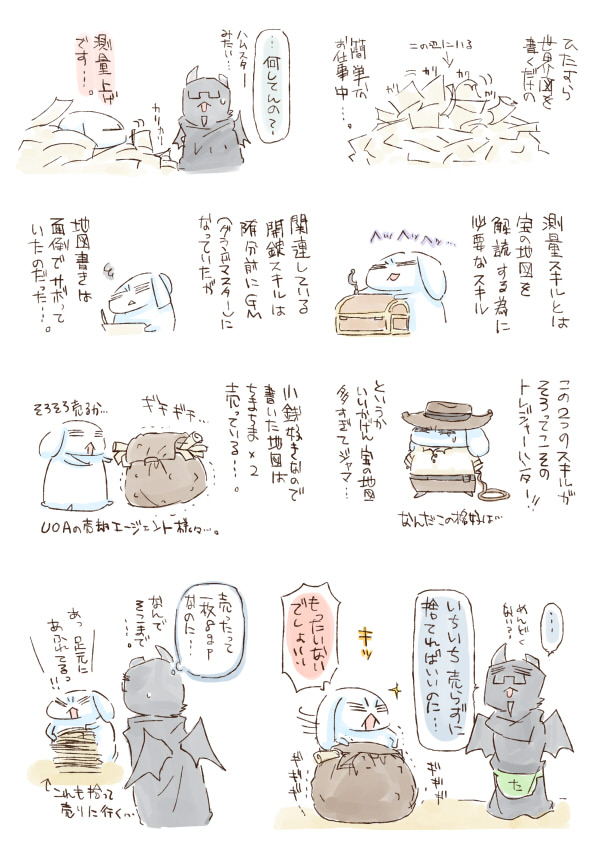 ひたすら
世界図を
書くだけの
この辺にいる
簡単な
お仕事中…。
…何してんの？
ハムスター
みたい…
測量上げ
です…。
カリカリ
測量スキルとは
宝の地図を
解読する為に
必要なスキル
ヘッヘッヘッ…
関連している
開錠スキルは
随分前にGM
(グランドマスター)に
なっていたが
地図書きは
面倒でサボって
いたのだった…。
この2つのスキルが
そろってこその
トレジャーハンター!!
なんだこの格好は…
というか
いいかげん宝の地図
多すぎてジャマ…
小銭好きなので
書いた地図は
ちまちま×2
売っている…。
ギギギ…
そろそろ売るか…
UOAの売却エージェント様々…。
…
めんどく
ない？っ
いちいち売らずに
捨てればいいのに…
た
キッ
もったいない
でしょい!
ギギギ
ギギギ
売ったって
一枚8gp
なのに…
なんで
そこまで
…。
あっ足元に
あふれてるっ!!
↑これも拾って
売りに行く…